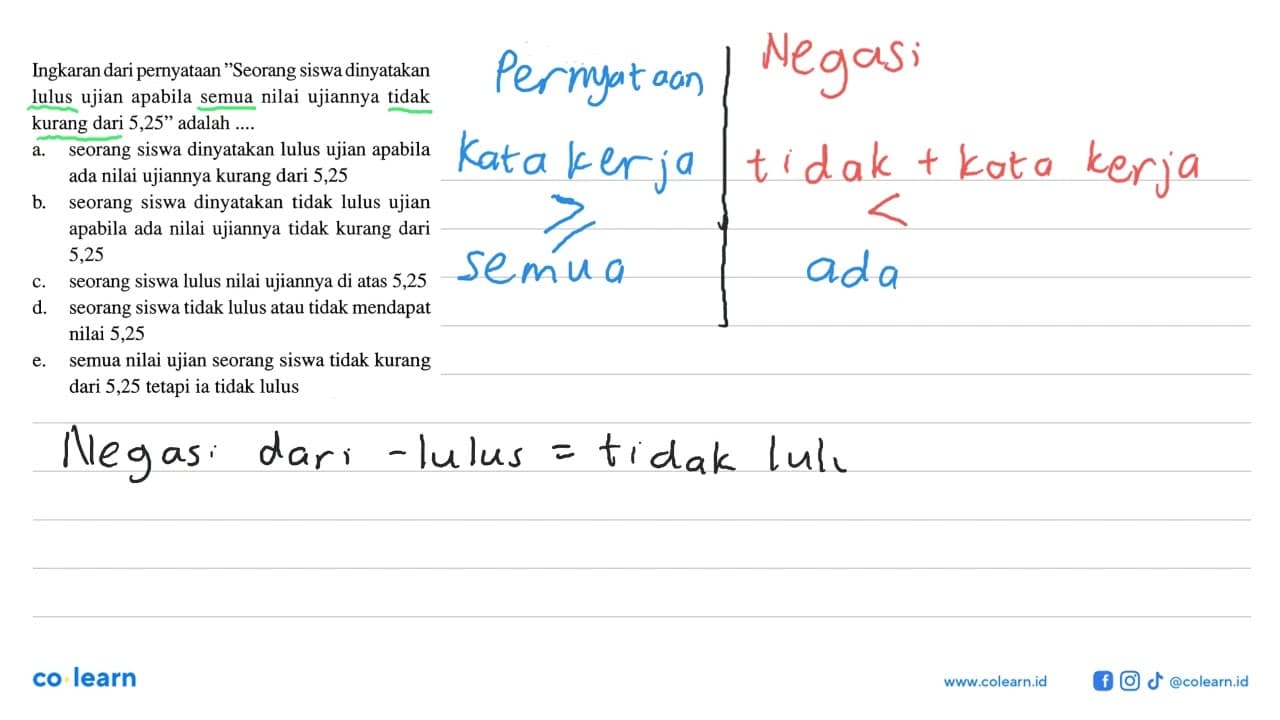 Ingkaran dari pernyataan "Seorang siswa dinyatakan
lulus ujian apabila semua nilai ujiannya tidak
kurang dari 5,25" adalah ....
a. seorang siswa dinyatakan lulus ujian apabila
ada nilai ujiannya kurang dari 5,25
b. seorang siswa dinyatakan tidak lulus ujian
apabila ada nilai ujiannya tidak kurang dari
5,25
c. seorang siswa lulus nilai ujiannya di atas 5,25
d. seorang siswa tidak lulus atau tidak mendapat
nilai 5,25
e. semua nilai ujian seorang siswa tidak kurang
dari 5,25 tetapi ia tidak lulus
Pernyataan Negasi
kata kerja tidak + kata kerja
⩾ <
semua ada
Negasi dari - lulus = tidak lul
co learn
www.colearn.id @colearn.id